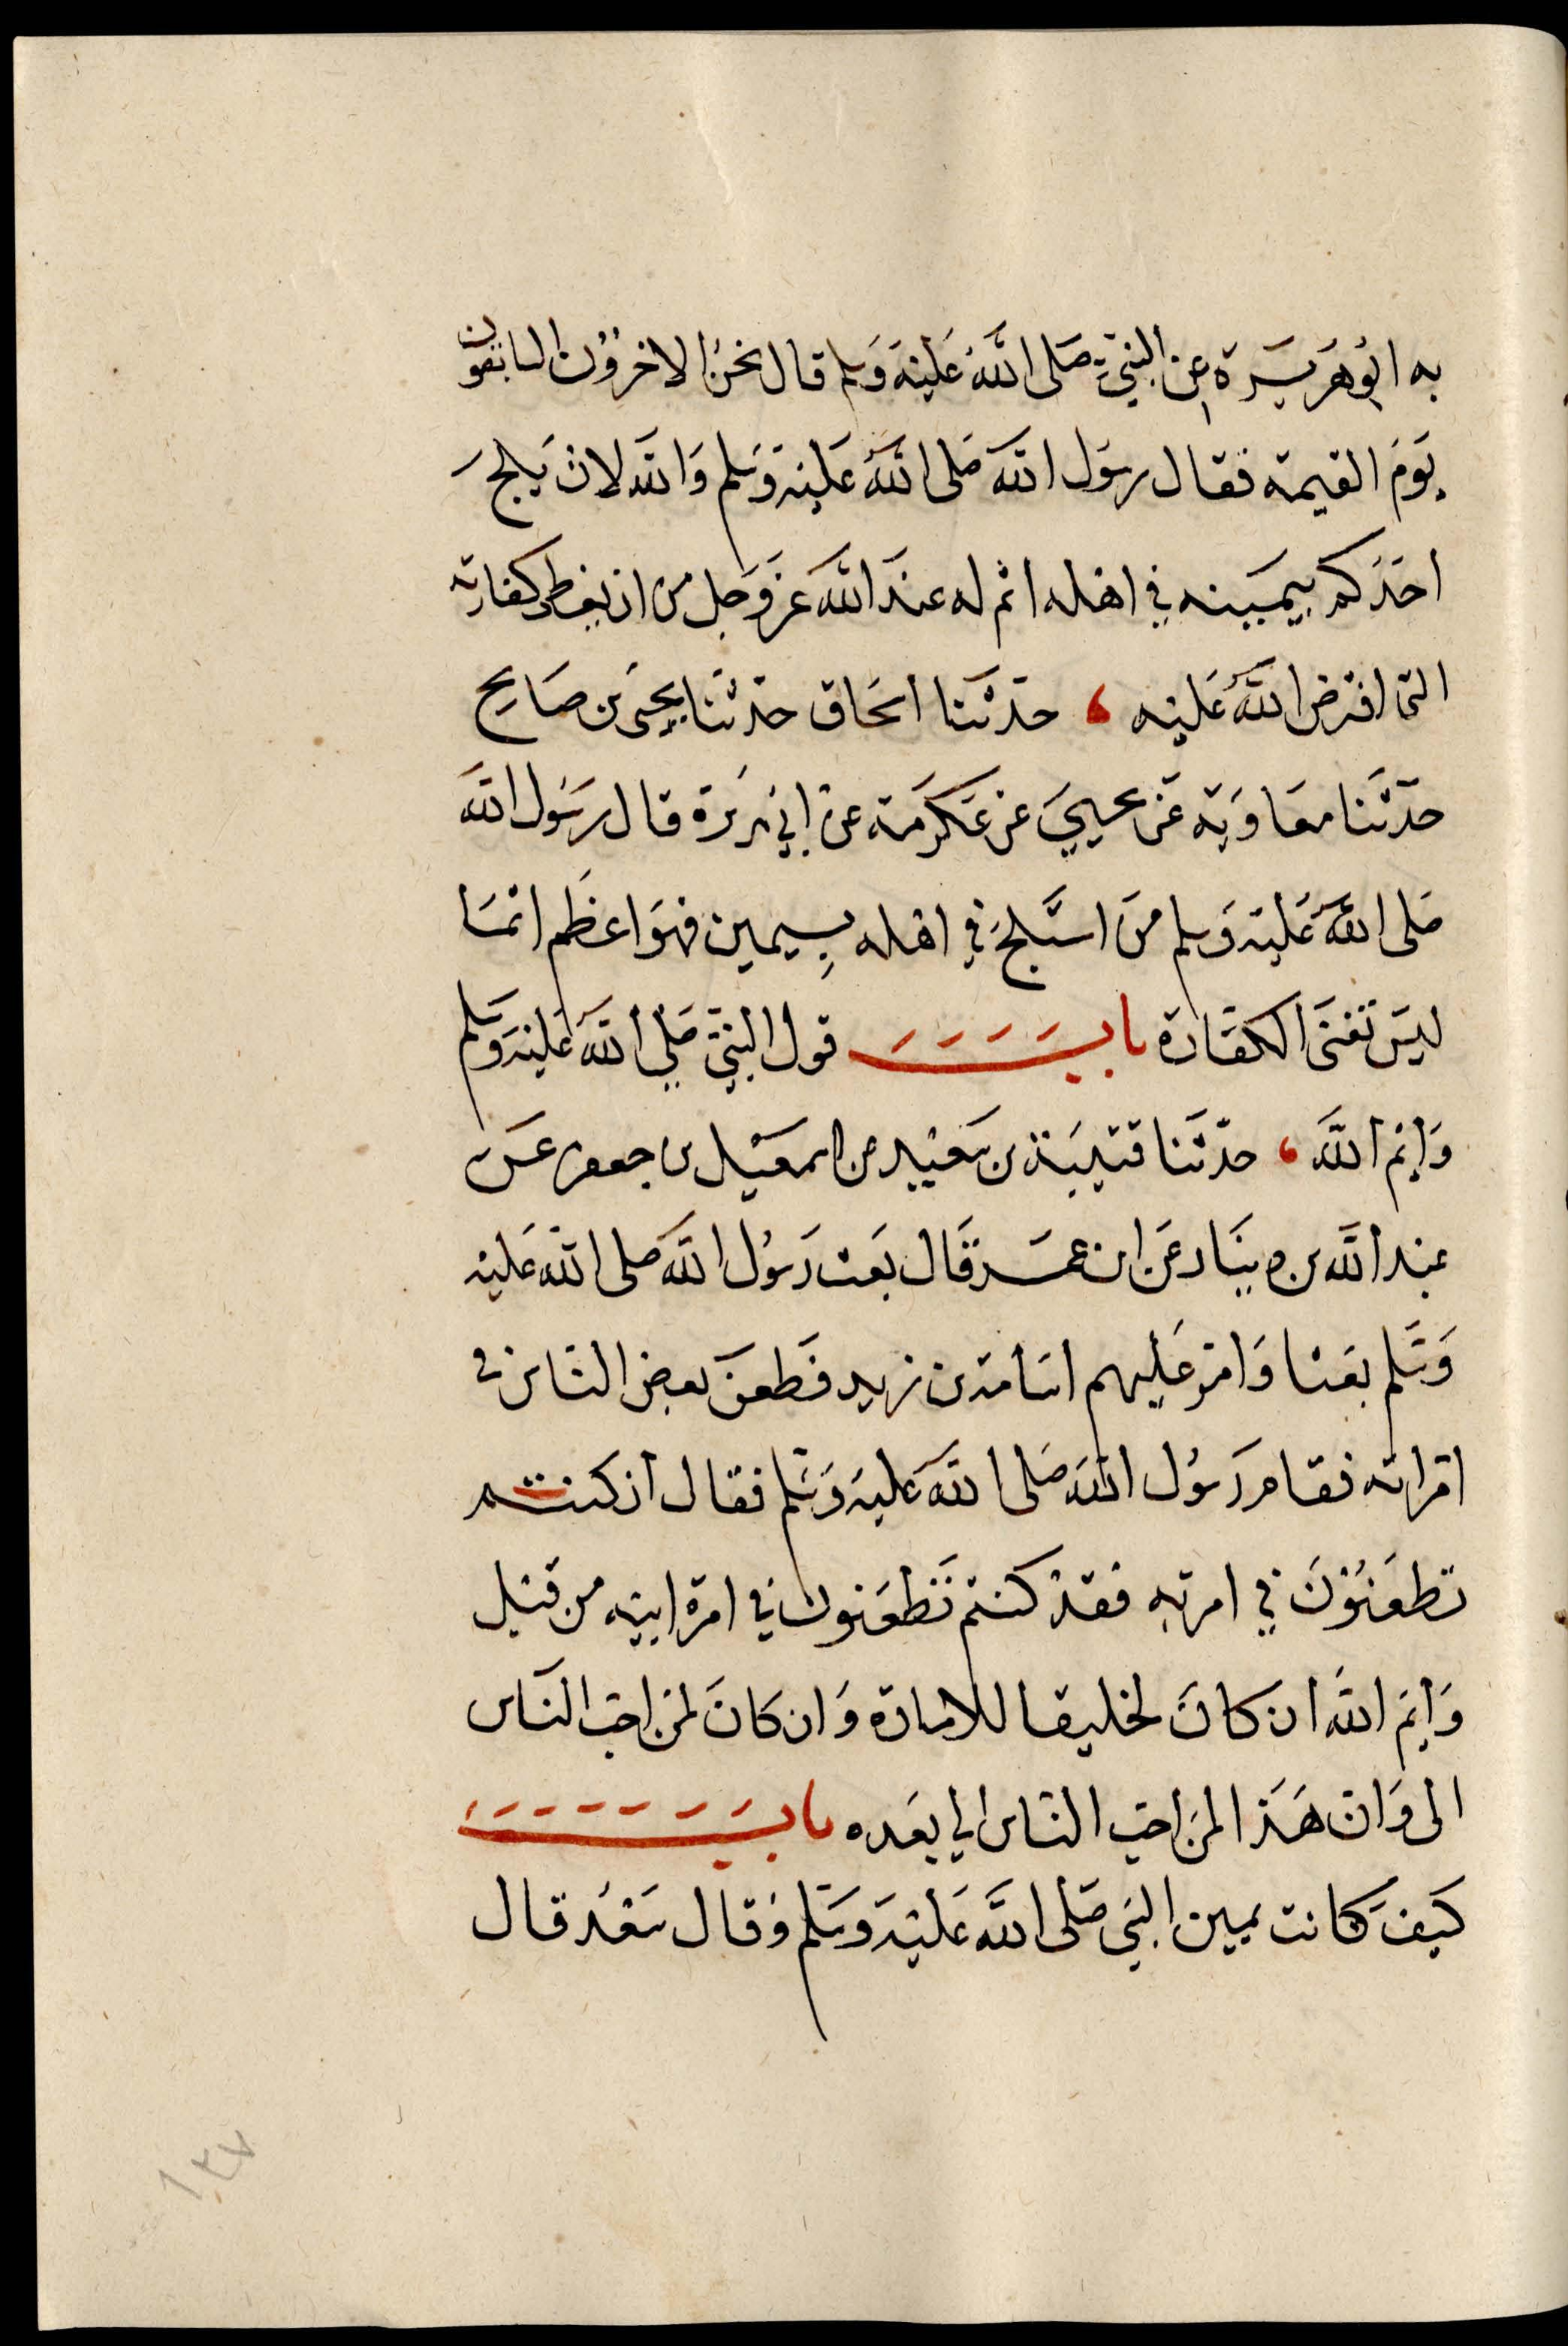 به ابو هريرة عن النبي صلى الله عليه وسلم قال نحن الاخرون السابقون
يوم القيمة فقال رسول الله صلى الله عليه وسلم والله لان يلج
احدكم بيمينه في اهله اثم له عند الله عز وجل من ان يعطى كفارته
التى افترض الله عليه ، حدثنا اسحاق حدثنا يحيى بن صالح
حدثنا معاوية عن يحيي عن عكرمة عن ابي هريرة قال رسول الله
صلى الله عليه وسلم من استلج في اهله بيمين فهو اعظم اثما
ليس تغنى الكفارة باب قول النبي صلي الله عليه وسلم
وايم الله ، حدثنا قتيبة بن سعيد عن اسمعيل بن جعفر عن
عبد الله بن دينار عن ابن عمر قال بعث رسول الله صلى الله عليه
وسلم بعثا وامر عليهم اسامة بن زيد فطعن بعض الناس في
امراته فقام رسول الله صلى الله عليه وسلم فقال ان كنتم
تطعنون في امرته فقد كنتم تطعنون في امرة ابيه من قبل
وايم الله ان كان لخليقا للامارة وان كان لمن احب الناس
الى وان هذا لمن احب الناس الي بعده باب
كيف كانت يمين النبي صلى الله عليه وسلم وقال سعد قال
١٣٧